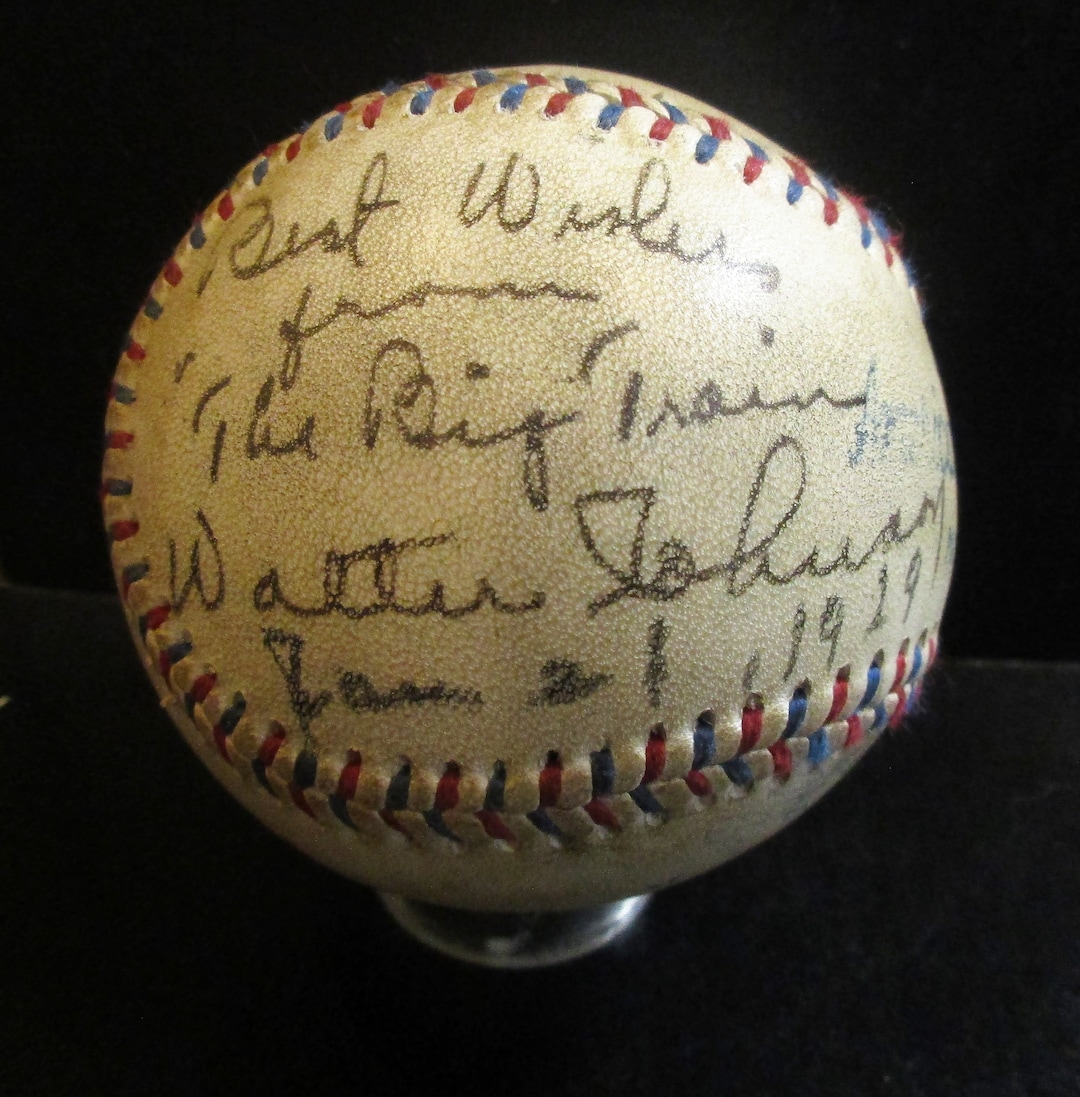 Best Wishes
from
"The Big Train"
Walter Johnson
Jan 21, 1939